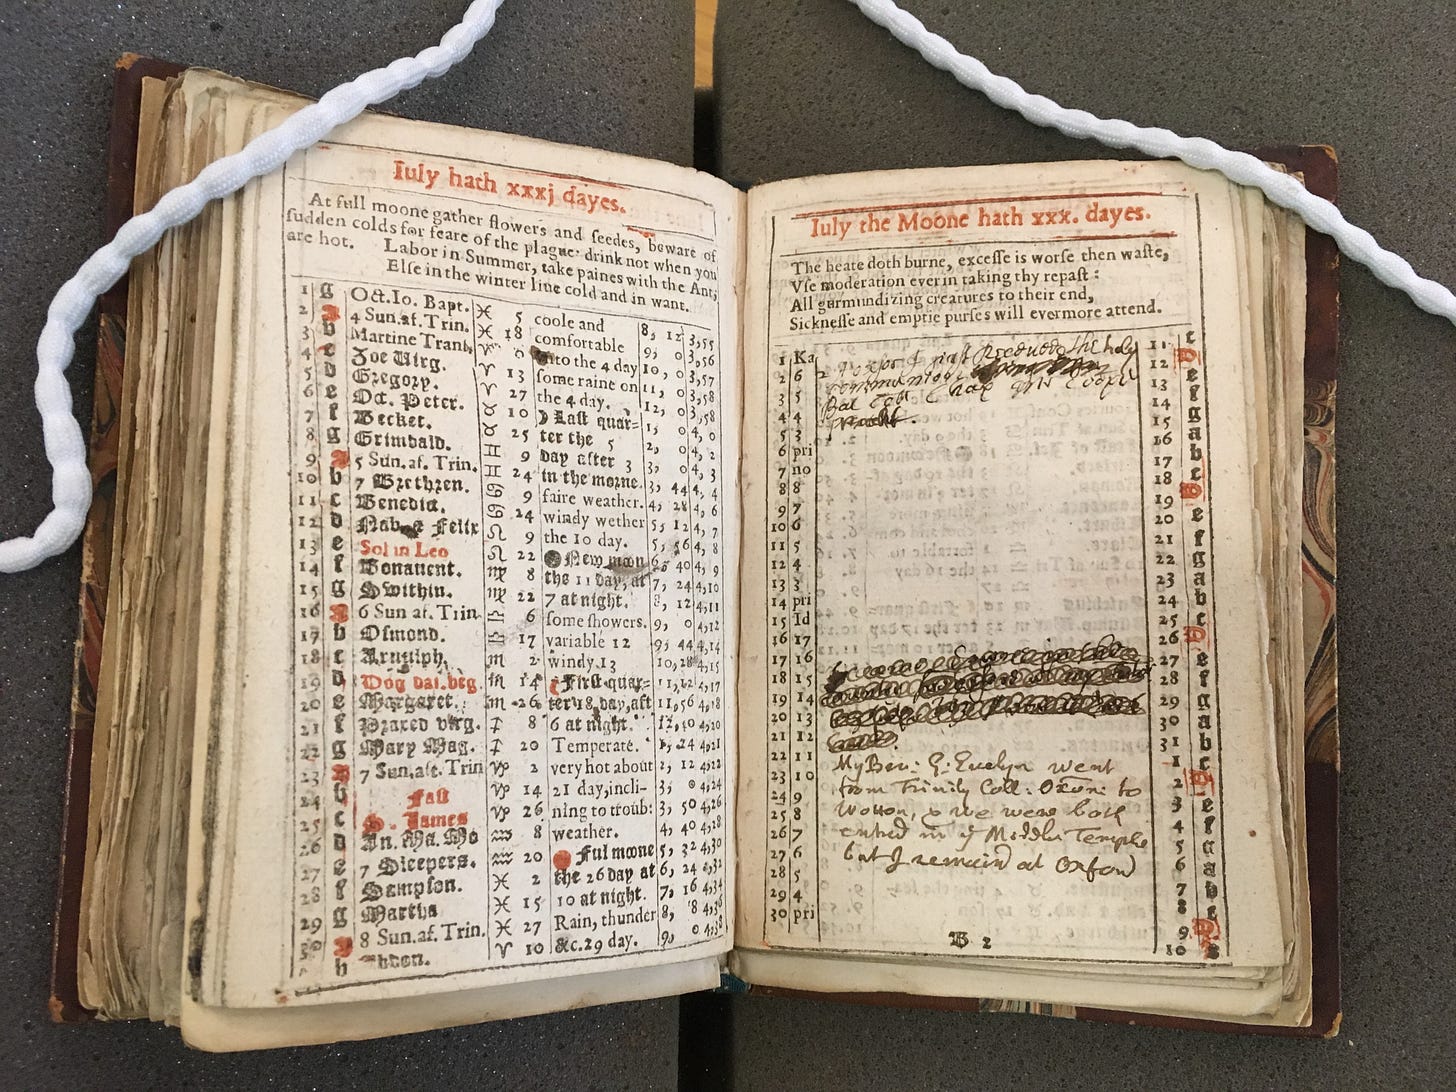 Iuly hath xxxj dayes.
At full moone gather flowers and seedes, beware of
sudden colds for feare of the plague: drink not when you
are hot. Labor in Summer, take paines with the Ant,
Else in the winter liue cold and in want.
1 g Oct. Io. Bapt. ♓ 5 coole and 8, 12 3,55
2 4 Sun.af.Trin. ♓ 18 comfortable 9, 0 3,56
3 b Martine Trans. ♈ 0 vnto the 4 day 10, 0 3,57
4 c Zoe Uirg. ♈ 13 some raine on 11, 0 3,58
5 d Gregory. ♈ 27 the 4 day. 12, 0 3,58
6 e Oct. Peter. ♉ 10 ☽ Last quar= 1, 0 4, 0
7 f Becket. ♉ 25 ter the 5 2, 0 4, 2
8 g Grimbald. ♊ 9 day after 3 3, 0 4, 3
9 5 Sun.af. Trin. ♊ 24 in the morne. 3, 44 4, 4
10 b 7 Brethren. ♋ 9 faire weather. 4, 28 4, 6
11 c Benedict. ♋ 24 windy wether 5, 12 4, 7
12 d Nab. & Felix ♌ 9 the 10 day. 5, 56 4, 8
13 e Sol in Leo ♌ 22 New moon 6, 40 4, 9
14 f Bonauent. ♍ 8 the 11 day, at 7, 24 4,10
15 g Swithin. ♍ 22 7 at night. 8, 12 4,11
16 6 Sun af. Trin ♎ 6 some showers. 9, 0 4,12
17 b Osmond. ♎ 17 variable 12 9, 44 4,14
18 c Arnulph. ♏ 2 windy.13 10,28 4,15
19 d Dog dai.beg. ♏ 14 First quar= 11,12 4,17
20 e Margaret. ♏ 26 ter 18 day, aft 11,56 4,18
21 f Praxed virg. ♐ 8 6 at night. 12,40 4,20
22 g Mary Mag. ♐ 20 Temperate. 1, 24 4,21
23 7 Sun.aft.Trin ♑ 2 very hot about 2, 12 4,22
24 b Fast ♑ 14 21 day,incli- 3, 0 4,24
25 c S. Iames ♑ 26 ning to troub: 3, 50 4,26
26 d An. Ma. Mo ♒ 8 weather. 4, 40 4,28
27 e 7 Sleepers. ♒ 20 Ful moone 5, 32 4,30
28 f Sampson. ♓ 2 the 26 day at 6, 24 4,32
29 g Martha ♓ 15 10 at night. 7, 16 4,34
30 8 Sun.af. Trin. ♓ 27 Rain, thunder 8, 8 4,36
b ♈ 10 &c. 29 day. 9, 0 4,38
Iuly the Moone hath xxx. dayes.
The heate doth burne, excesse is worse then waste,
Vse moderation ever in taking thy repast:
All gurmundizing creatures to their end,
Sicknesse and emptie purses will evermore attend.
1 Ka 11 c
2 6 I first Receaved the holy 12
3 5 Communion 13 e
4 4 Bal Coll: Chap 14 f
5 3 15 g
6 pri 16 a
7 no 17 b
8 8 18 c
9 7 19
10 6 20 e
11 5 21 f
12 4 22 g
13 3 23 a
14 pri 24 b
15 Id 25 c
16 17 26
17 16 27 e
18 15 28 f
19 14 29 g
20 13 30 a
21 12 31 b
22 11 My Bro: G: Euelyn went 1 c
23 10 from Trinity Coll: Oxon: to 2
24 9 Wotton, & we were both 3 e
25 8 entred in ye Middle Temple 4 f
26 7 but I remain'd at Oxford 5 g
27 6 6 a
28 5 7 b
29 4 8 c
30 pri 9
10 e
B 2